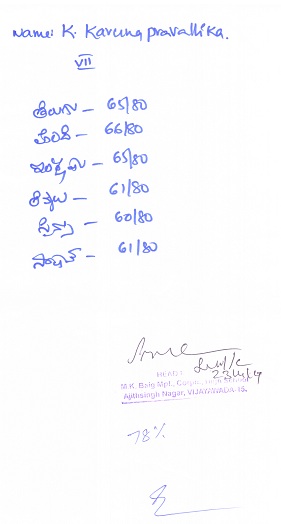 Name: K. Karuna pravallika.
VII
తెలుగు – 65/80
హిందీ – 66/80
ఇంగ్లీషు – 65/80
లెక్కలు – 61/80
సైన్సు – 60/80
సోషల్ – 61/80
M.K. Baig Mpl. Corpn. High School
Ajithsingh Nagar, VIJAYAWADA-15.
78%